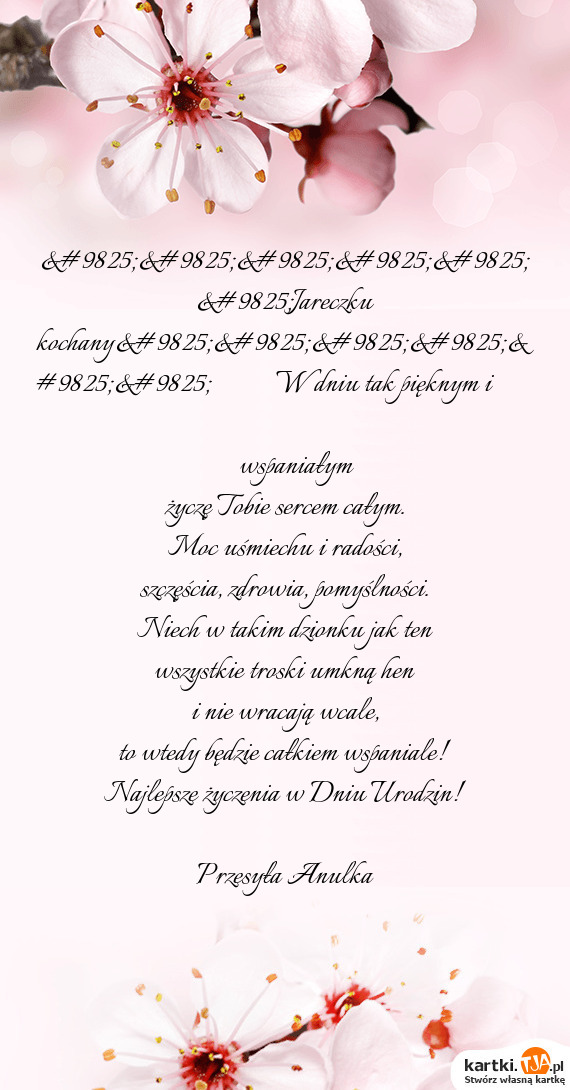 &#9825;&#9825;&#9825;&#9825;&#9825;
&#9825;Jareczku
kochany&#9825;&#9825;&#9825;&#9825;&
#9825;&#9825; W dniu tak pięknym i
wspaniałym
życzę Tobie sercem całym.
Moc uśmiechu i radości,
szczęścia, zdrowia, pomyślności.
Niech w takim dzionku jak ten
wszystkie troski umkną hen
i nie wracają wcale,
to wtedy będzie całkiem wspaniale!
Najlepsze życzenia w Dniu Urodzin!
Przesyła Anulka
kartki.TJA.pl
Stwórz własną kartkę